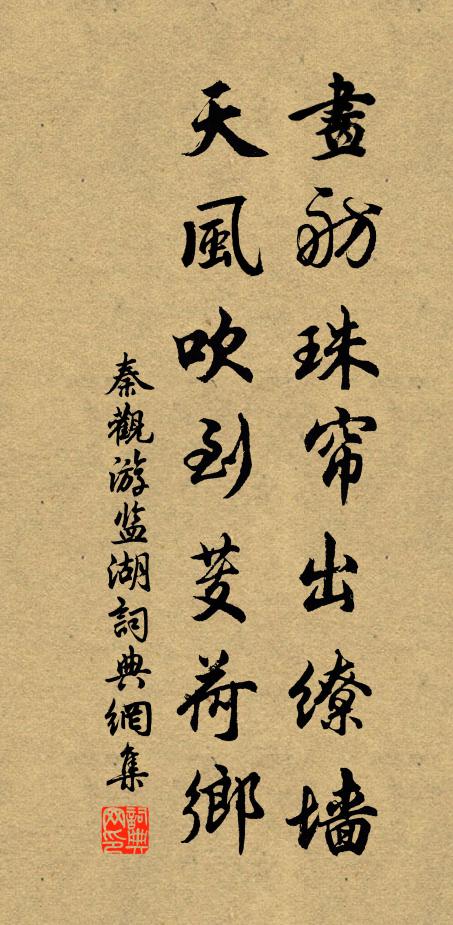 畫舫珠帘出缭墙
天風吹到芰荷鄉
秦觀游监湖詞典網集
詞典网印